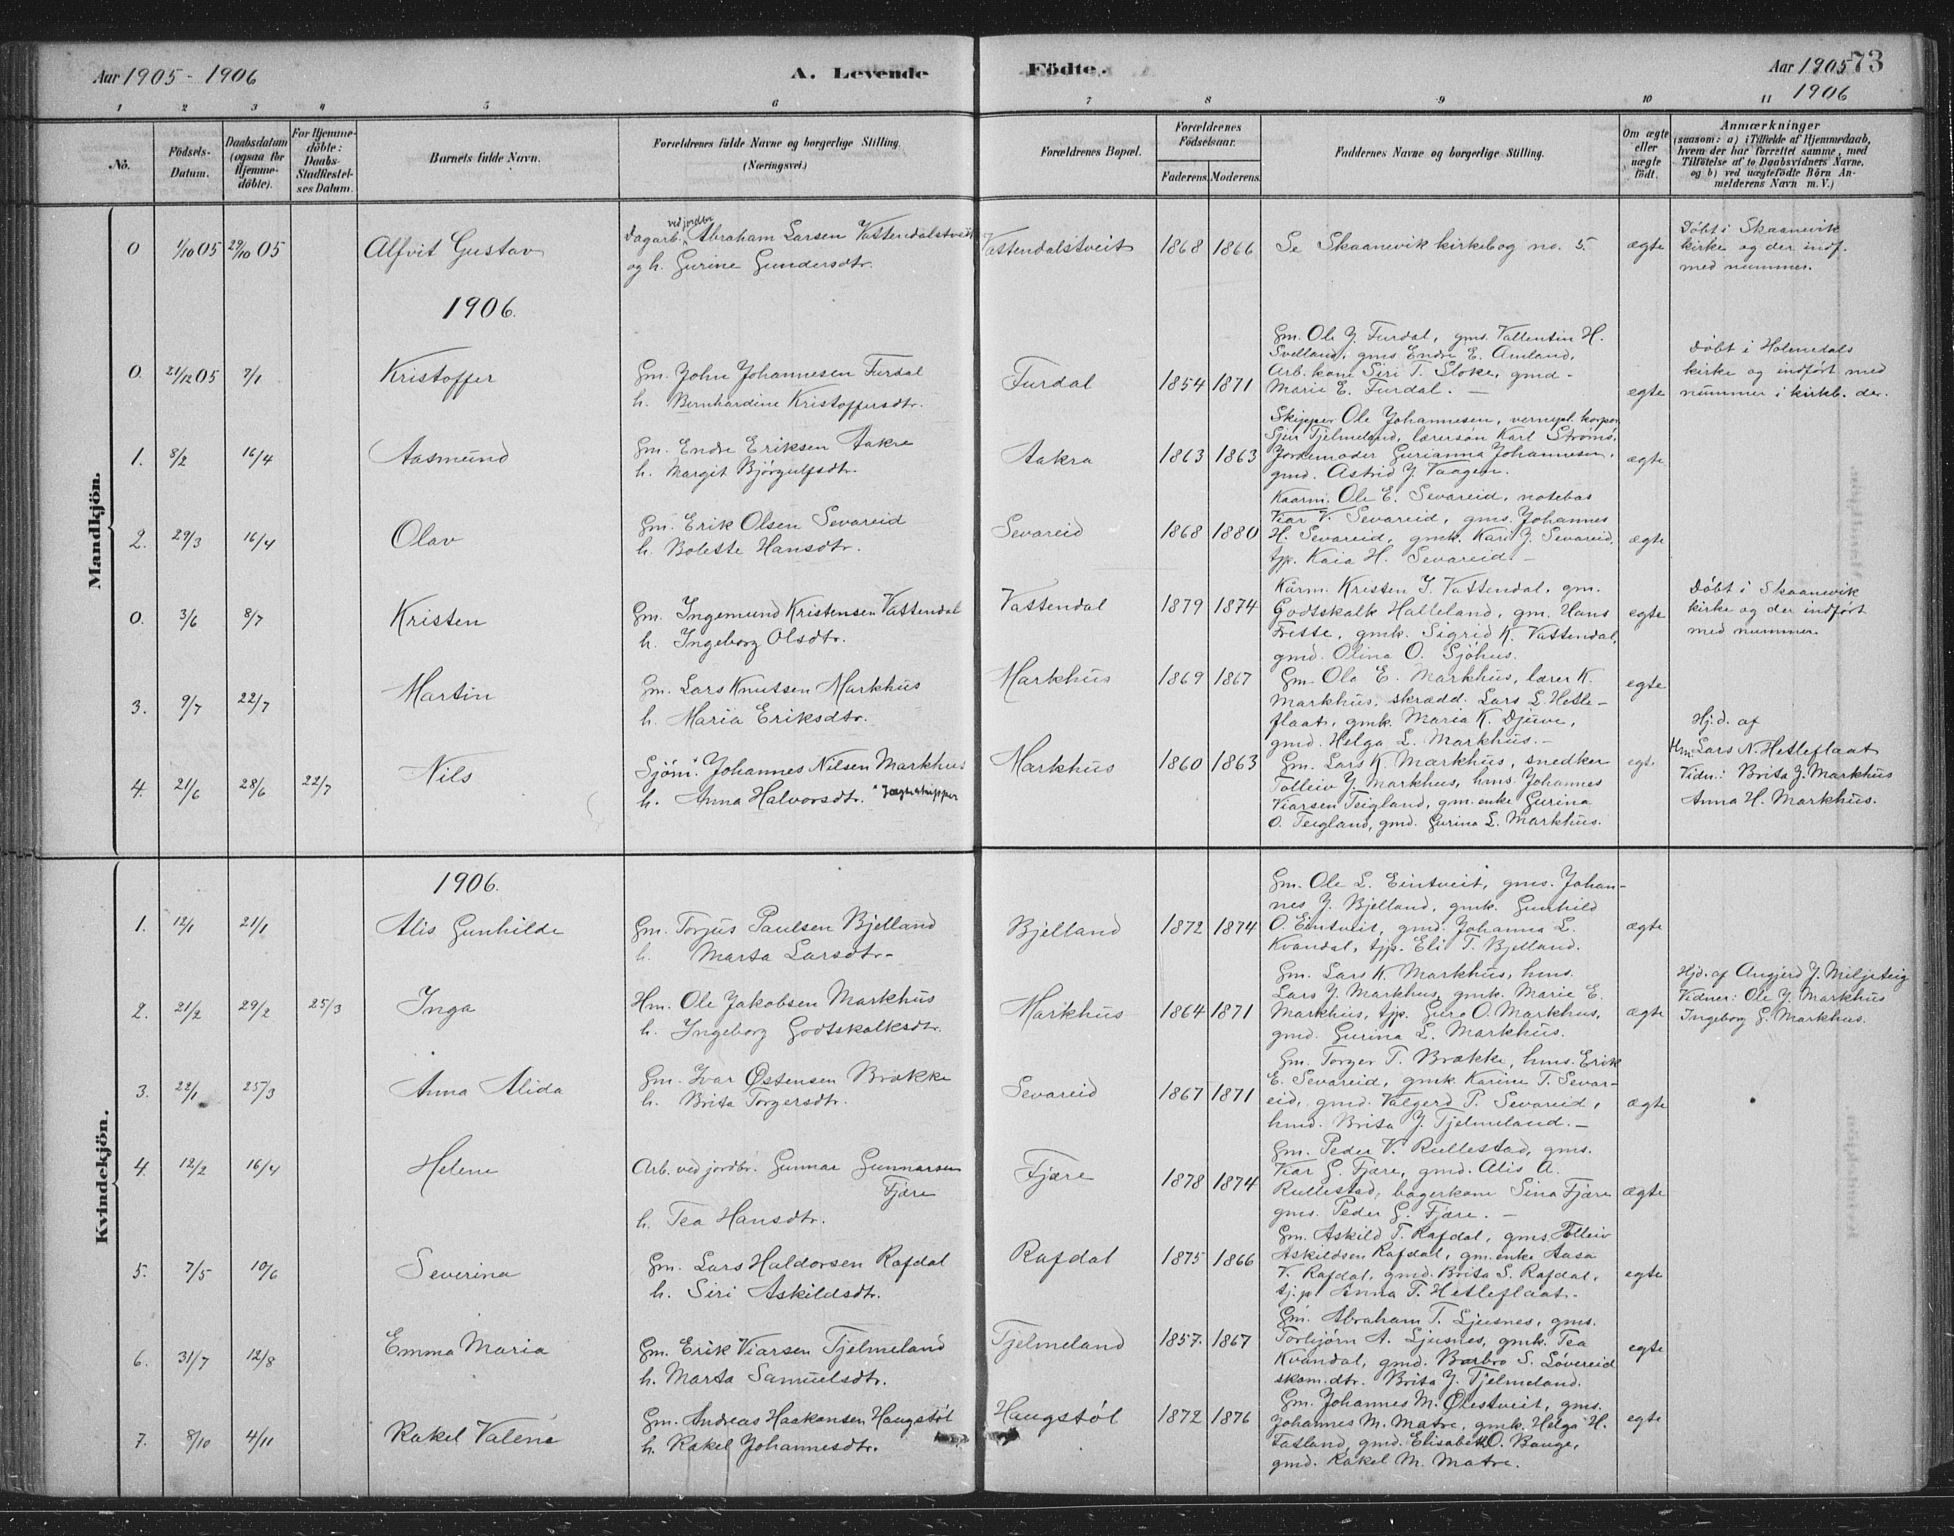 Aar 1905 - 1906
A. Levende
Födte.
Aar 1905
1906
73
1 2 3 4 5 6 7 8 9 10 11
No.
Födsels-
Datum.
Daabsdatum
(ogsaa for
Hjemme-
döbte).
For Hjemme-
döbte:
Daabs-
Stadfæstel-
ses Datum.
Barnets fulde Navn.
Forældrenes fulde Navne og borgerlige Stilling.
(Næringsvei.)
Forældrenes Bopæl.
Forældrenes
Födselsaar.
Faderens. Moderens.
Faddernes Navne og borgerlige Stilling.
Om ægte
eller
uægte
födt.
Anmærkninger
(saasom: a) i Tilfælde af Hjemmedaab,
hvem der har forrettet samme, med
Tilföielse af to Daabsvidners Navne,
og b) ved uægtefödte Börn An-
melderens Navn m. V.)
Mandkjön.
0 1/10 05 29/10 05 Alfvit Gustav
ved jordbr
Dagarb. Abraham Larsen Vattendalstveit
og h. Gurine Gundersdtr.
Vattendalstveit 1868 1866 Se Skaanevik kirkebog no. 5. ægte
Döbt i Skaanevik
kirke og der indf.
med nummer.
1906.
0. 21/12 05 7/1 Kristoffer
Gm. John Johannesen Furdal
h. Bernhardine Kristoffersdtr.
Furdal 1854 1871
Gm. Ole J. Furdal, gms. Vallentin H.
Svelland, gms Endre E. Amland,
Arb. kone Siri T. Stoke, gmd-
Marie E. Furdal. -
egte
Döbt i Holmedals
kirke og indfört med
nummer i kirkb. der.
1. 8/2 16/4 Aasmund
Gm. Endre Eriksen Aakre
h. Margit Björgulfsdtr.
Aakra 1863 1863
Skipper Ole Johannesen, vernepl. korpor.
Sjur Tjelmeland, lærersön Karl Ströms,
Jordemoder Gurianna Johannesen,
gmd. Astrid J. Vaagen.
ægte
2. 29/3 16/4 Olav
Gm. Erik Olsen Sevareid
h. Bolette Hansdtr.
Sevareid 1868 1880
Kaarm. Ole E. Sevareid, notebas
Viar V. Sevareid, gms. Johannes
H. Sevareid, gmk. Kari J. Sevareid,
tjp. Kaia H. Sevareid. -
ægte
0. 3/6 8/7 Kristen
Gm. Ingemund Kristensen Vattendal
h. Ingeborg Olsdtr.
Vattendal 1879 1874
Kårm. Kristen I. Vattendal, gm.
Godtskalk Halleland, gm. Hans
Frette, gmk. Sigrid K. Vattendal,
gmd. Olina O. Sjöhus.
egte
Döbt i Skaanevik
kirke og der indfört
med nummer.
3. 9/7 22/7 Martin
Gm. Lars Knutsen Markhus
h. Maria Eriksdtr.
Markhus 1869 1867
Gm. Ola E. Markhus, lærer K.
Markhus, skrædd. Lars L. Hetle-
flaat, gmk. Maria K. Djuve,
gmd. Helga L. Markhus. -
egte
4. 21/6 28/6 22/7 Nils
Sjöm. Johannes Nilsen Markhus
h. Anna Halvorsdtr. Jægteskipper
Markhus 1860 1863
Gm. Lars K. Markhus, snedker
Tolleiv J. Markhus, hms. Johannes
Viarsen Teigland, gm. enke Gurina
O. Teigland, gmd. Gurina L. Markhus.
egt.
Hj.d. af
Hm. Lars N. Hetleflaat
Vidn.: Brita J. Markhus
Anna H. Markhus.
Kvindekjön.
1906.
1. 12/1 21/1 Alis Gunhilde
Gm. Torjus Paulsen Bjelland
h. Marta Larsdtr. -
Bjelland 1872 1874
Gm. Ole L. Eintveit, gms. Johan-
nes J. Bjelland, gmk. Gunhild
O. Eintveit, gmd. Johanna L.
Kvandal, tjp. Eli T. Bjelland.
ægte
2. 21/2 29/2 25/3 Inga
Hm. Ole Jakobsen Markhus
h. Ingeborg Godtskalksdtr.
Markhus 1864 1871
Gm. Lars K. Markhus, hms.
Lars J. Markhus, gmk. Marie E.
Markhus, tjp. Guro O. Markhus,
gmd. Gurina L. Markhus.
ægte
Hjd. af Angjerd J. Miljeteig
Vidner: Ole J. Markhus
Ingeborg G. Markhus.
3. 22/1 25/3 Anna Alida
Gm. Ivar Østensen Brække
h. Brita Torgersdtr.
Sevareid 1867 1871
Gm. Torger T. Brække, hms. Erik
E. Sevareid, gmk. Karine T. Sevar-
eid, gmd. Valgerd P. Sevareid,
hmd. Brita J. Tjelmeland. -
ægte
4. 12/2 16/4 Helene
Arb. ved jordbr. Gunnar Gunnarsen
Fjære
h. Tea Hansdtr.
Fjære 1878 1874
Gm. Peder V. Rullestad, gms.
Viar G. Fjære, gmd. Alis A.
Rullestad, bagerkone Sina Fjære
gms. Peder G. Fjære. -
ægte
5. 7/5 10/6 Severina
Gm. Lars Haldorsen Rafdal
h. Siri Askildsdtr.
Rafdal 1875 1866
Gm. Askild T. Rafdal, gms. Tolleiv
Askildsen Rafdal, gm. enke Aasa
V. Rafdal, gmd. Brita S. Rafdal,
tj.p. Anna T. Hetleflaat.
egte
6. 31/7 12/8 Emma Maria
Gm. Erik Viarsen Tjelmeland
h. Marta Samuelsdtr.
Tjelmeland 1857. 1867
Gm. Abraham T. Ljusnes, gms.
Torbjörn A. Ljusnes, gmk. Tea
Kvandal, gmd. Barbro S. Lövereid
skom.dtr. Brita J. Tjelmeland.
egte
7. 8/10 4/11 Rakel Valene
Gm. Andreas Haakonsen Haugstöl
h. Rakel Johannesdtr.
Haugstöl 1872 1876
Gm. Johannes M. Ølestveit, gms.
Johannes M. Matre, gmk. Helga H.
Fatland, gmd. Elisabeth O. Bauge,
gmd. Rakel M. Matre.
egte